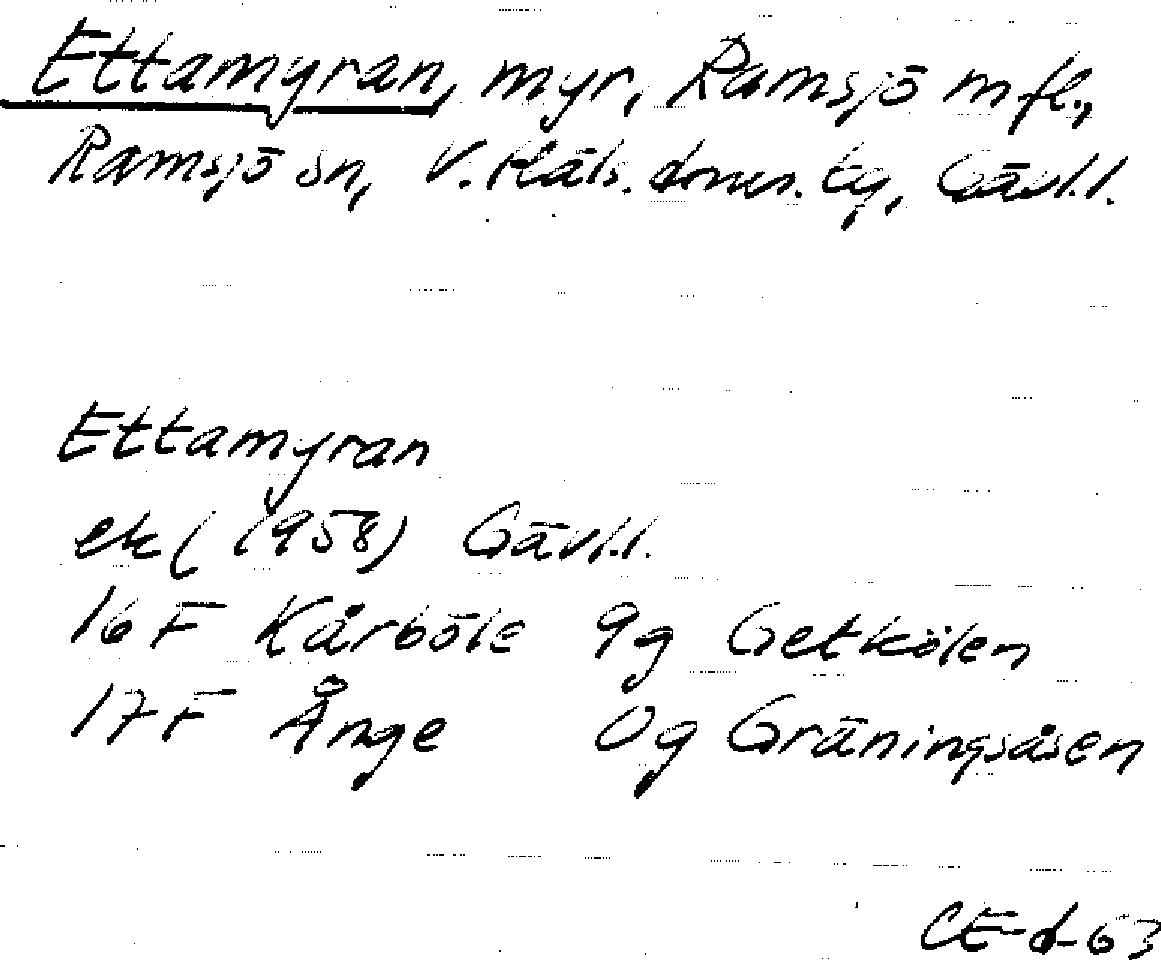 Ettamyran, myr, Ramsjö m fl.,
Ramsjö sn, V. Häls. doms. tg, Gävl.l.
Ettamyran
ek (1958) Gävl.l.
16 F Kårböle 9g Getkölen
17 F Ånge 0g Gräningsåsen
CE-d-63